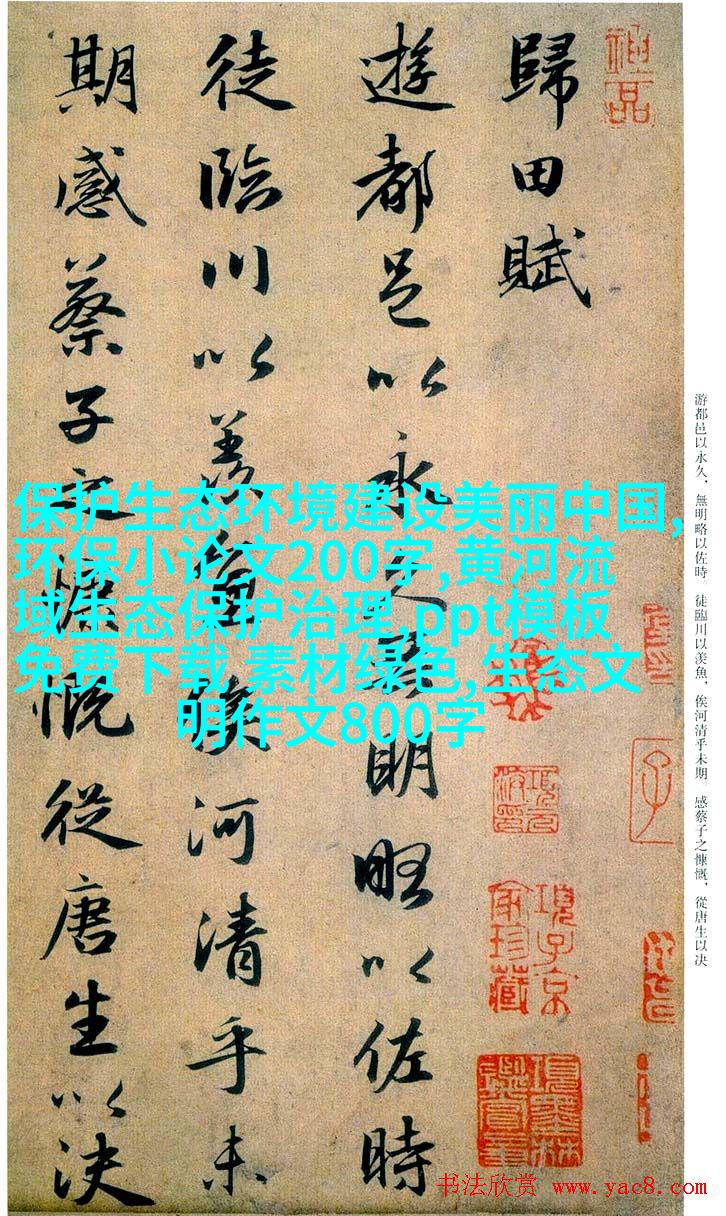 歸田賦
遊都邑以永久無明略以佐時
徒臨川以羨魚俟河清乎未
期感蔡子之慷慨從唐生以决
保护生态环境建设美丽中国,
环保小论文200字,黄河流
域生态保护治理,ppt模板
免费下载,素材绿色,生态文
明作文800字
游都邑以永久，無明略以佐時　徒臨川以羨魚，俟河清乎未期。感蔡子之慷慨，從唐生以决
神品
項子京家珍藏
項墨林鑑賞章
书法欣赏 www.yac8.com